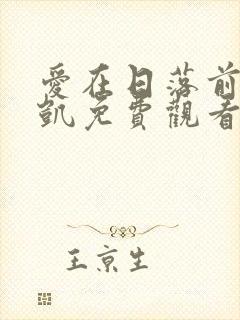 愛在日落前
凱免費觀看
王京生